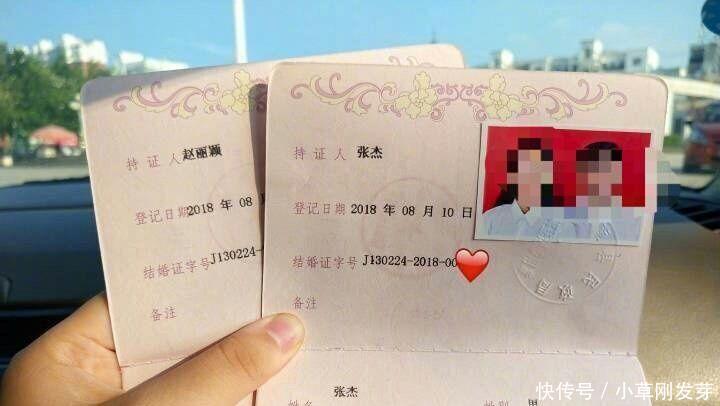 持证人 赵丽颖
登记日期 2018 年 08
结婚证字号 J130224-
备注
持证人 张杰
登记日期 2018 年 08 月 10 日
结婚证字号 J130224-2018-00
备注
张杰
姓名
性别 男
快传号 / 小草刚发芽